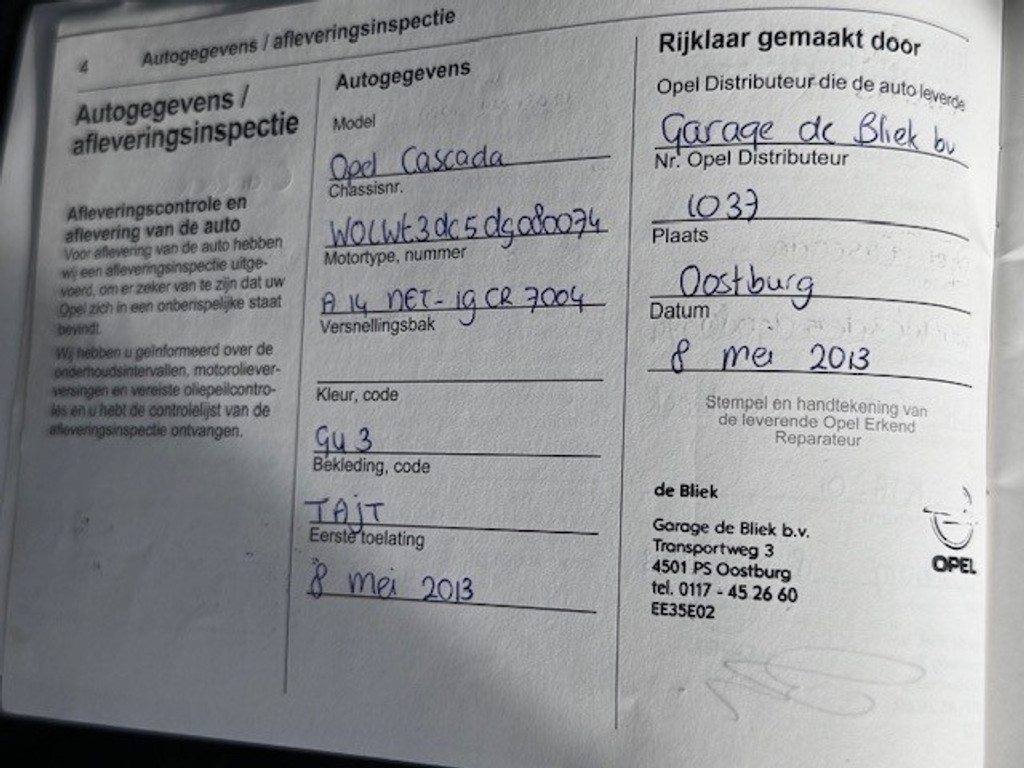 4
Autogegevens / afleveringsinspectie
Autogegevens /
afleveringsinspectie
Afleveringscontrole en
aflevering van de auto
Voor aflevering van de auto hebben
wij een afleveringsinspectie uitge-
voerd, om er zeker van te zijn dat uw
Opel zich in een onberispelijke staat
bevindt.
Wij hebben u geïnformeerd over de
onderhoudsintervallen, motoroliever-
versingen en vereiste oliepeilcontro-
les en u hebt de controlelijst van de
afleveringsinspectie ontvangen.
Autogegevens
Model
Opel Cascada
Chassisnr.
WOLWt3dc5dg080074
Motortype, nummer
A 14 NET - 19 CR 7004
Versnellingsbak
Kleur, code
Gu 3
Bekleding, code
TAJT
Eerste toelating
8 mei 2013
Rijklaar gemaakt door
Opel Distributeur die de auto leverde
Garage de Bliek bv
Nr. Opel Distributeur
1037
Plaats
Oostburg
Datum
8 mei 2013
Stempel en handtekening van
de leverende Opel Erkend
Reparateur
de Bliek
Garage de Bliek b.v.
Transportweg 3
4501 PS Oostburg
tel. 0117 - 45 26 60
EE35E02
OPEL